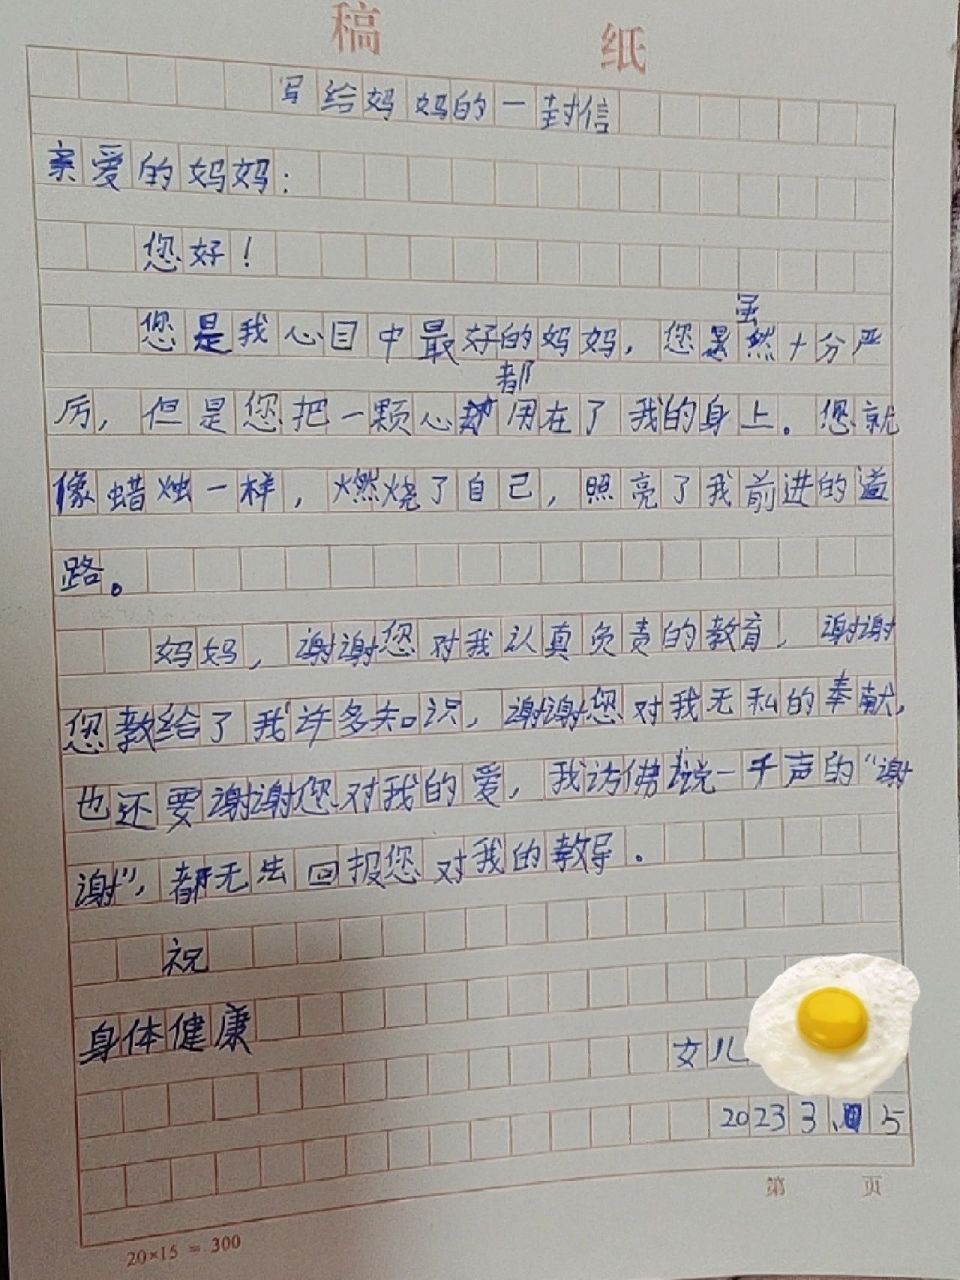 稿 纸
写给妈妈的一封信
亲爱的妈妈：
您好！
您是我心目中最好的妈妈，您虽然十分严
厉，但是您把一颗心都用在了我的身上。您就
像蜡烛一样，燃烧了自己，照亮了我前进的道
路。
妈妈，谢谢您对我认真负责的教育，谢谢
您教给了我许多知识，谢谢您对我无私的奉献，
也还要谢谢您对我的爱，我访佛说一千声的“谢
谢”，都无法回报您对我的教导．
祝
身体健康
女儿
2023 3. 5
第 页
20×15 = 300